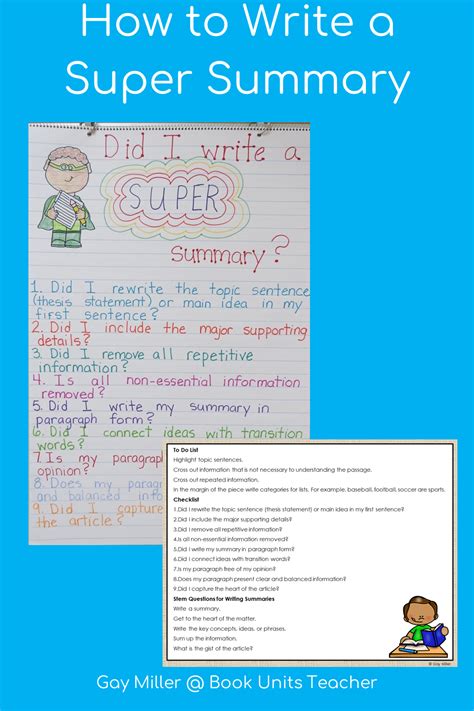 How to Write a
Super Summary
Did I write a
SUPER
summary?
1. Did I rewrite the topic sentence
(thesis statement) or main idea in my
first sentence?
2. Did I include the major supporting
details?
3. Did I remove all repetitive
information?
4. Is all non-essential information
removed?
5. Did I write my summary in
paragraph form?
6. Did I connect ideas with transition
words?
7. Is my paragra
opinion?
8. Does my parag
and balanced infor
9. Did I captur
the article?
To Do List
Highlight topic sentences.
Cross out information that is not necessary to understanding the passage.
Cross out repeated information.
In the margin of the piece write categories for lists. For example, baseball, football, soccer are sports.
Checklist
1.Did I rewrite the topic sentence (thesis statement) or main idea in my first sentence?
2.Did I include the major supporting details?
3.Did I remove all repetitive information?
4.Is all non-essential information removed?
5.Did I write my summary in paragraph form?
6.Did I connect ideas with transition words?
7.Is my paragraph free of my opinion?
8.Does my paragraph present clear and balanced information?
9.Did I capture the heart of the article?
Stem Questions for Writing Summaries
Write a summary.
Get to the heart of the matter.
Write the key concepts, ideas, or phrases.
Sum up the information.
What is the gist of the article?
© Gay Miller
Gay Miller @ Book Units Teacher